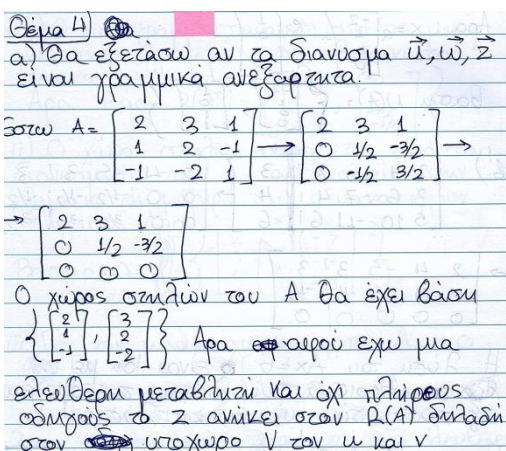 Θέμα 4)
α) Θα εξετάσω αν τα διανυσμα u, w, z
είναι γραμμικά ανεξαρτητα.
Εστω A = [2 3 1; 1 2 -1; -1 -2 1] → [2 3 1; 0 1/2 -3/2; 0 -1/2 3/2] →
→ [2 3 1; 0 1/2 -3/2; 0 0 0]
Ο χώρος στηλών του A θα έχει βάση
{[2 1 -1], [3 2 -2]} Αρα αφού έχω μια
ελεύθερη μεταβλητή και όχι πλήρους
οδηγούς το z ανήκει στον R(A) δηλαδή
στον υποχωρο V του u και v